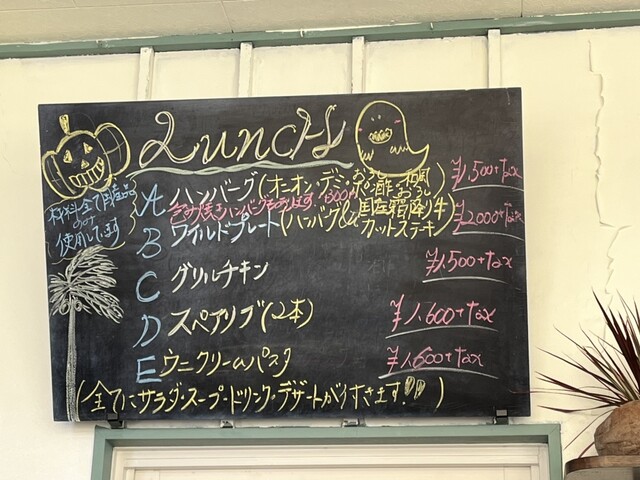 Lunch
材料全て国産品
のみ
使用してます
A ハンバーグ(オニオン・デミ・おろし ¥1,500+tax
B ワイルドプレート(ハンバーグ&国産霜降り牛カットステーキ) ¥2,000+tax
C グリルチキン ¥1,500+tax
D スペアリブ(2本) ¥1,600+tax
E ウニクリームパスタ ¥1,600+tax
(全てにサラダ・スープ・ドリンク・デザートがつきます!)